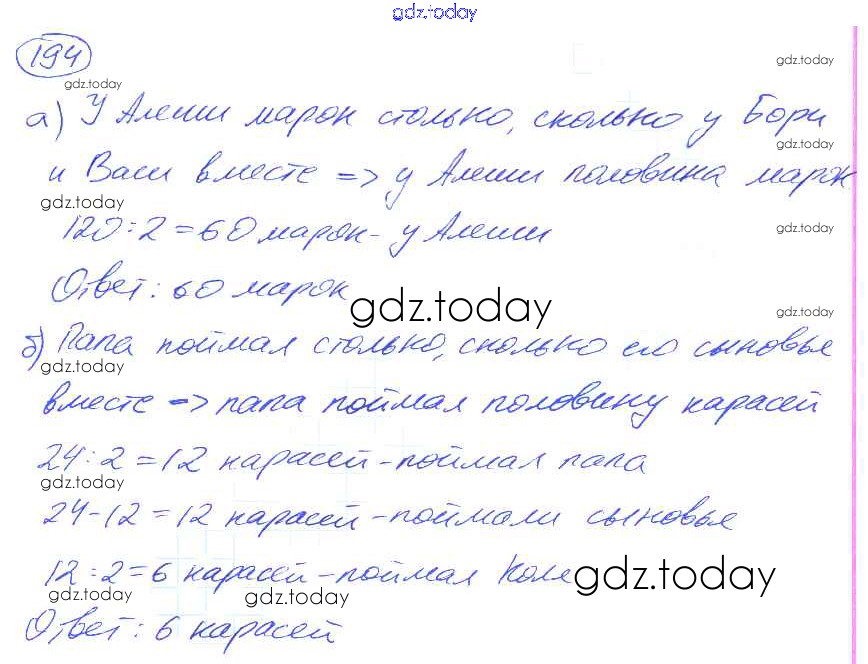 gdz.today
194
gdz.today
gdz.today
а) У Алеши марок столько, сколько у Бори
gdz.today
и Васи вместе => у Алеши половина марок
gdz.today
120:2=60 марок - у Алеши
gdz.today
Ответ: 60 марок
gdz.today
gdz.today
б) Папа поймал столько, сколько его сыновья
gdz.today
вместе => папа поймал половину карасей
24:2=12 карасей - поймал папа
gdz.today
gdz.today
24-12=12 карасей - поймали сыновья
12:2=6 карасей - поймал Коля
gdz.today
gdz.today
gdz.today
Ответ: 6 карасей